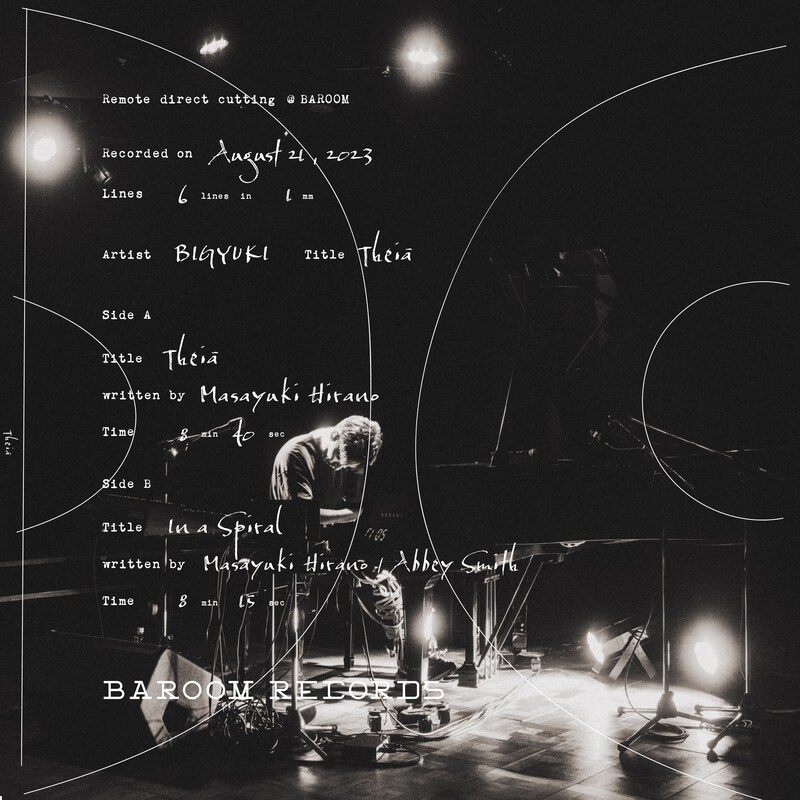 Remote direct cutting @ BAROOM
Recorded on August 21, 2023
Lines 6 lines in 1 mm
Artist BIGYUKI Title Theiā
Side A
Title Theiā
written by Masayuki Hirano
Time 8 min 40 sec
Side B
Title In a Spiral
written by Masayuki Hirano / Abbey Smith
Time 8 min 15 sec
BAROOM RECORDS
Theiā